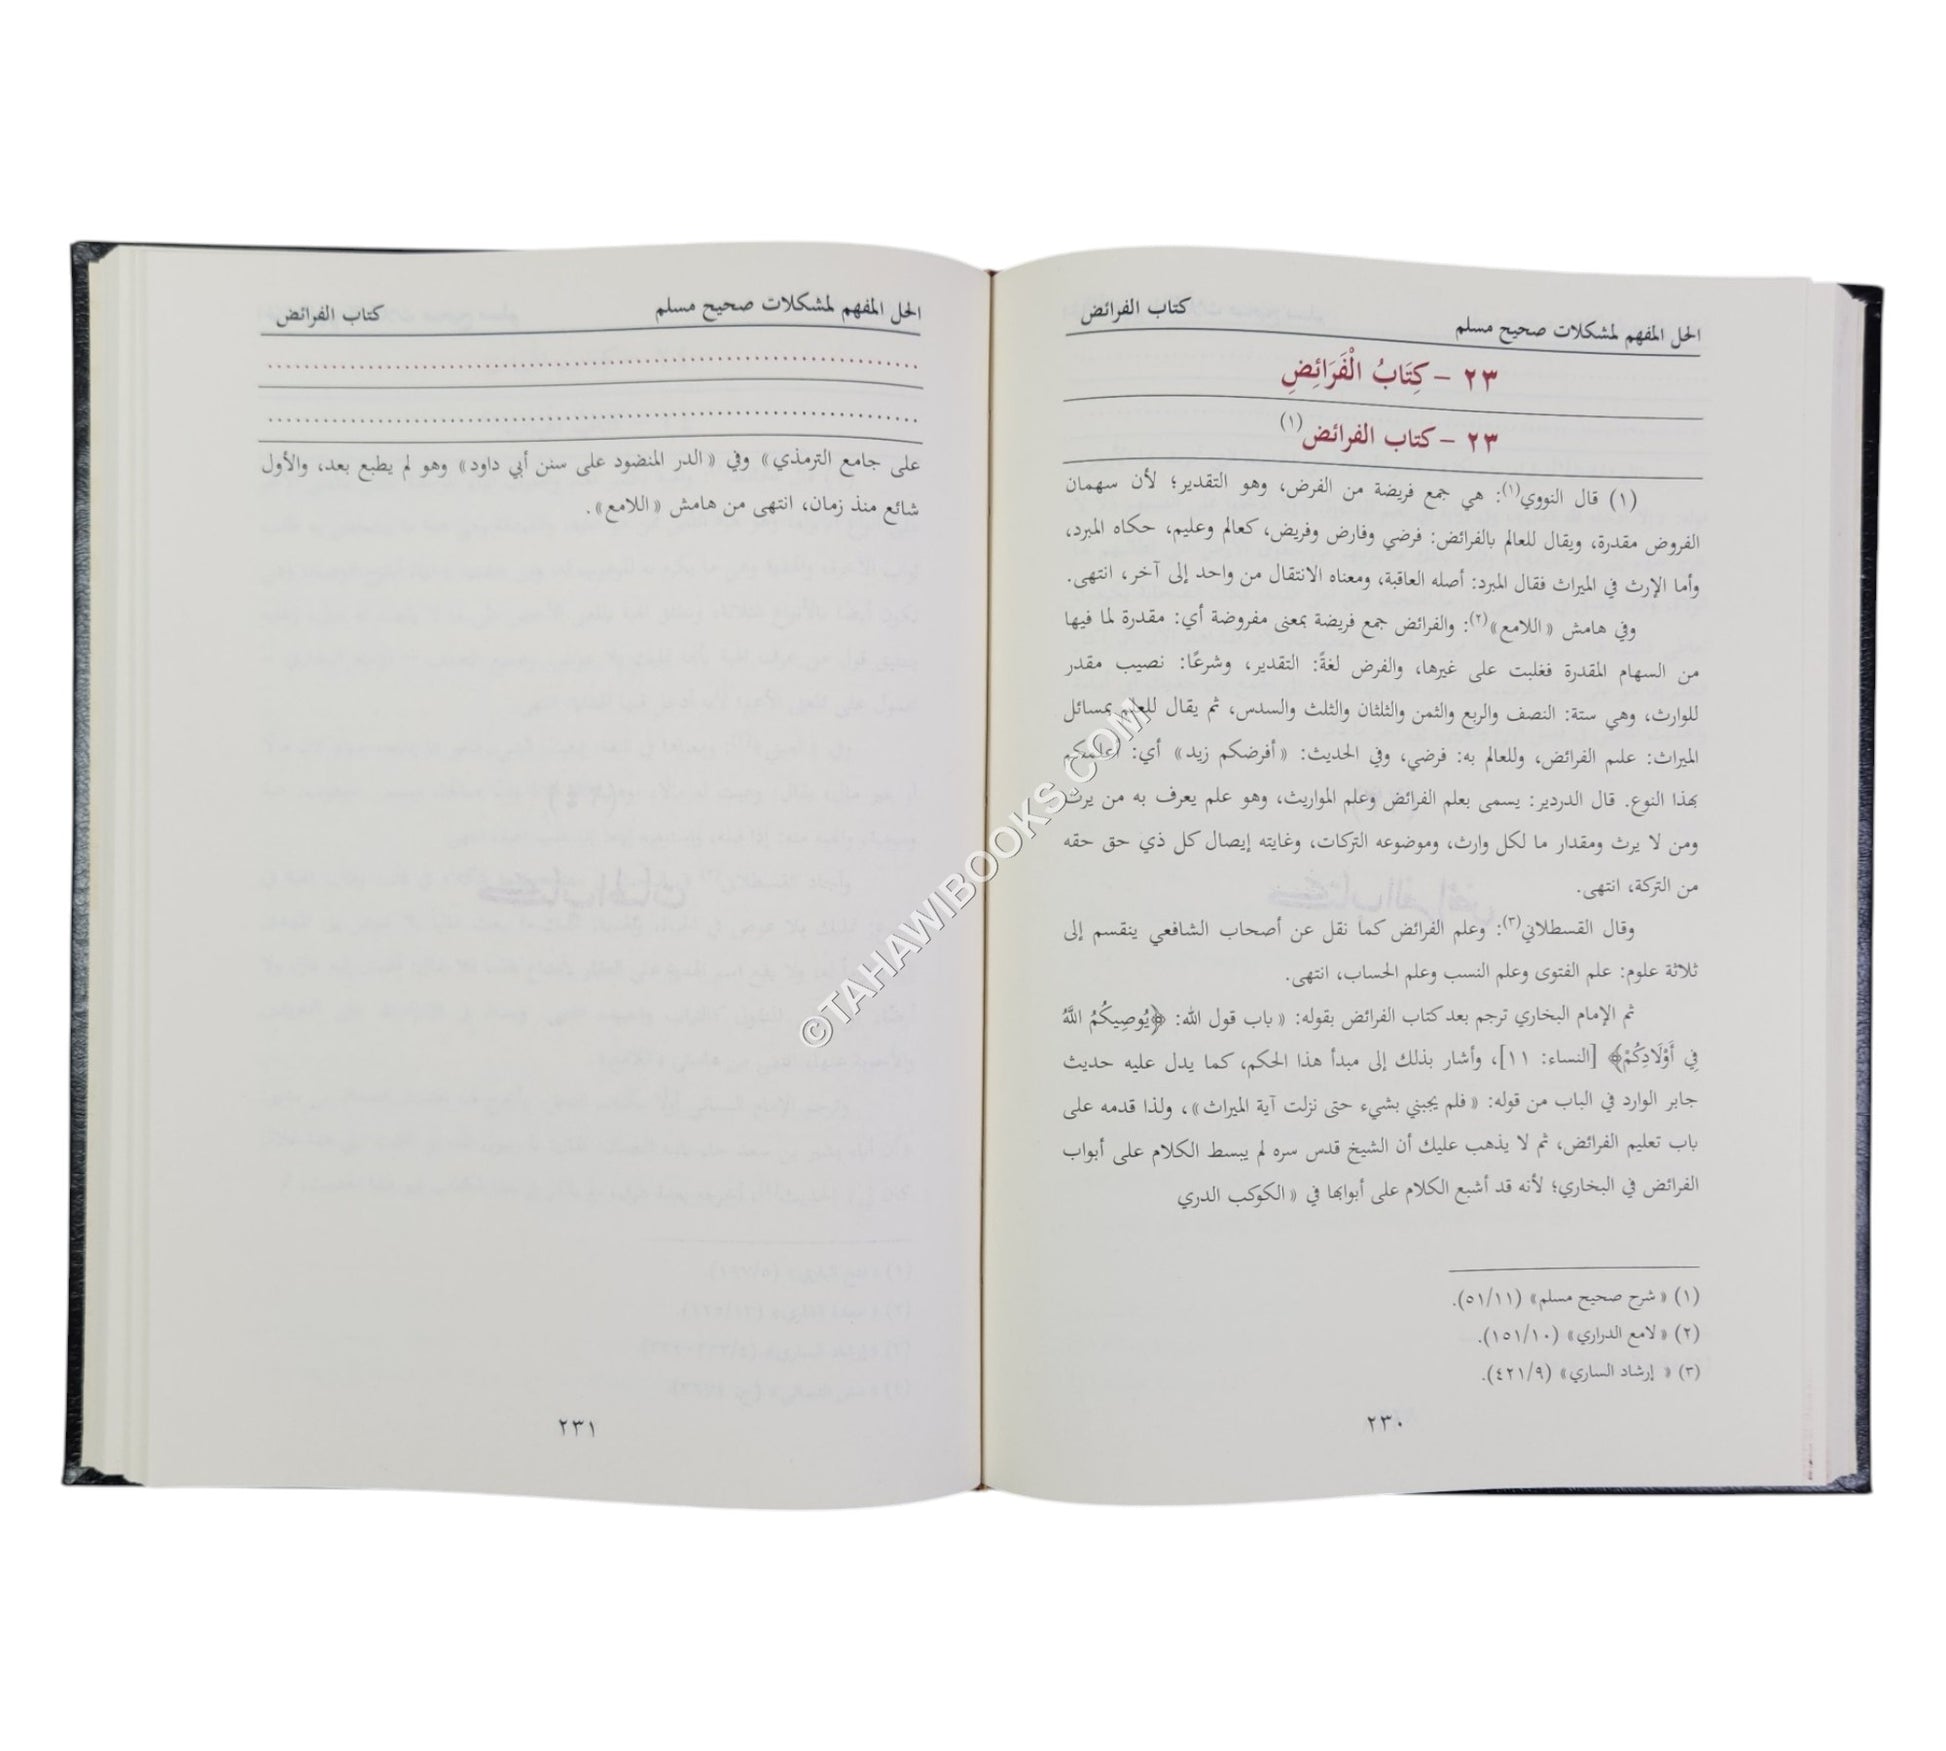 الحل المفهم لمشكلات صحيح مسلم كتاب الفرائض
٢٣ – كِتَابُ الْفَرَائِضِ
٢٣ – كتاب الفرائض(١)
(١) قال النووي(١): هي جمع فريضة من الفرض، وهو التقدير؛ لأن سهمان
الفروض مقدرة، ويقال للعالم بالفرائض: فرضي وفارض وفريض، كعالم وعليم، حكاه المبرد،
وأما الإرث في الميراث فقال المبرد: أصله العاقبة، ومعناه الانتقال من واحد إلى آخر، انتهى.
وفي هامش «اللامع»(٢): والفرائض جمع فريضة بمعنى مفروضة أي: مقدرة لما فيها
من السهام المقدرة فغلبت على غيرها، والفرض لغةً: التقدير، وشرعًا: نصيب مقدر
للوارث، وهي ستة: النصف والربع والثمن والثلثان والثلث والسدس، ثم يقال للعلم بمسائل
الميراث: علم الفرائض، وللعالم به: فرضي، وفي الحديث: «أفرضكم زيد» أي: أعلمكم
بهذا النوع. قال الدردير: يسمى بعلم الفرائض وعلم المواريث، وهو علم يعرف به من يرث
ومن لا يرث ومقدار ما لكل وارث، وموضوعه التركات، وغايته إيصال كل ذي حق حقه
من التركة، انتهى.
وقال القسطلاني(٣): وعلم الفرائض كما نقل عن أصحاب الشافعي ينقسم إلى
ثلاثة علوم: علم الفتوى وعلم النسب وعلم الحساب، انتهى.
ثم الإمام البخاري ترجم بعد كتاب الفرائض بقوله: «باب قول الله: ﴿يُوصِيكُمُ اللَّهُ
فِي أَوْلَادِكُمْ﴾ [النساء: ١١]، وأشار بذلك إلى مبدأ هذا الحكم، كما يدل عليه حديث
جابر الوارد في الباب من قوله: «فلم يجبني بشيء حتى نزلت آية الميراث»، ولذا قدمه على
باب تعليم الفرائض، ثم لا يذهب عليك أن الشيخ قدس سره لم يبسط الكلام على أبواب
الفرائض في البخاري؛ لأنه قد أشبع الكلام على أبوابها في «الكوكب الدري
(١) «شرح صحيح مسلم» (٥١/١١).
(٢) «لامع الدراري» (١٥١/١٠).
(٣) «إرشاد الساري» (٤٢١/٩).
٢٣٠
الحل المفهم لمشكلات صحيح مسلم كتاب الفرائض
على جامع الترمذي» وفي «الدر المنضود على سنن أبي داود» وهو لم يطبع بعد، والأول
شائع منذ زمان، انتهى من هامش «اللامع».
٢٣١
©TAHAWIBOOKS.COM